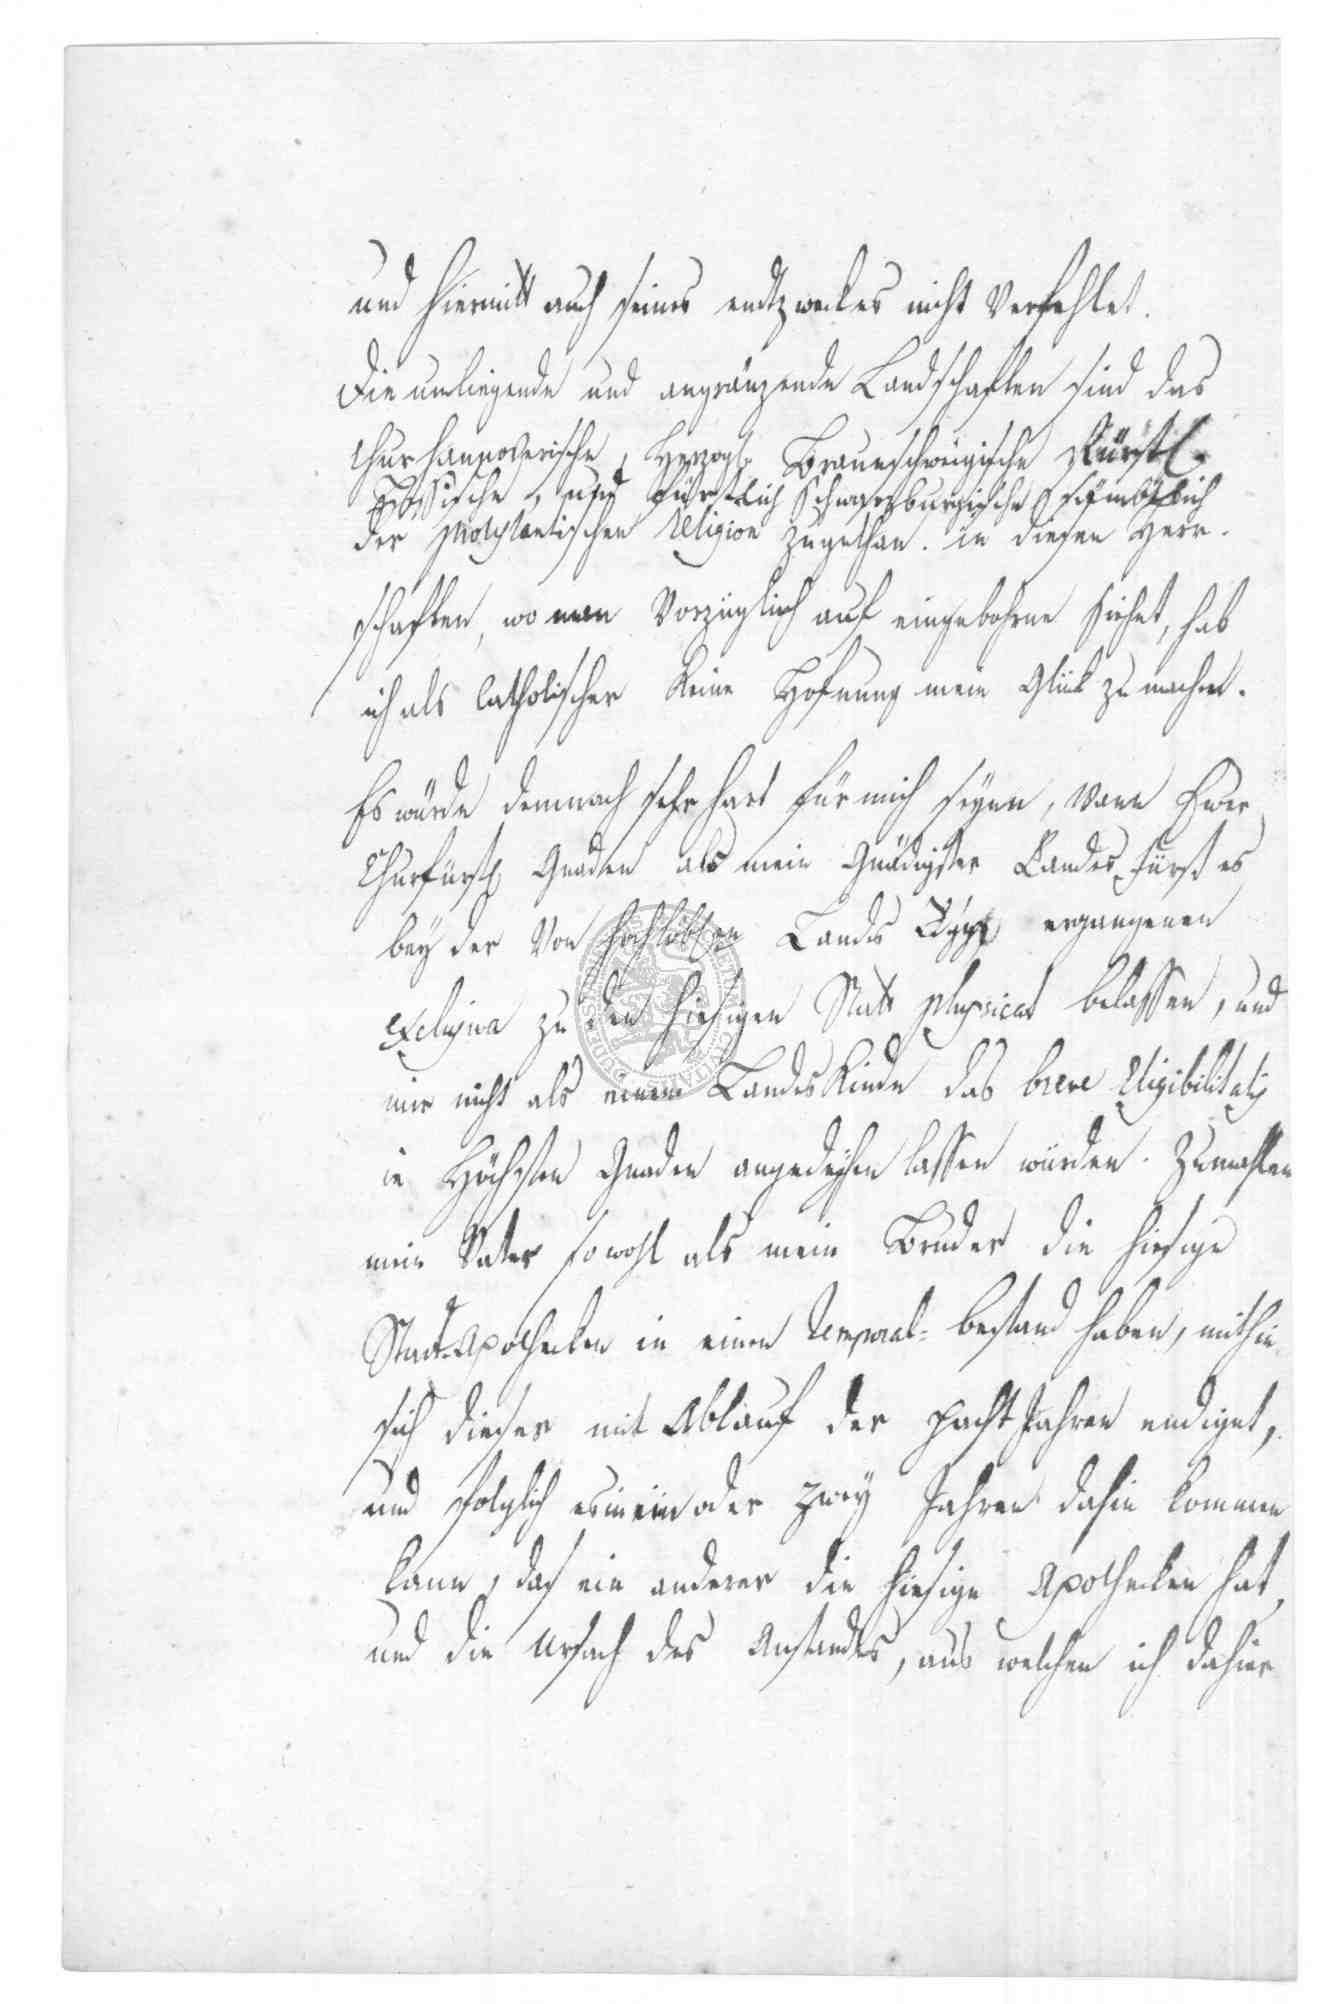 und hiermitt auch seines endtzweckes nicht Verfehlet.
Die umliegende und angränzende Landschaften sind das
Churhannoverische, Herzogl. Braunschweigische Fürstl.
Hessische, und Fürstlich Schwarzburgische sämbtlich
der protestantischen Religion zugethan. in diesen Herr-
schaften, wo man Vorzüglich auf eingebohrne siehet, hab
ich als Catholischer Keine Hofnung mein Glück zu machen.
Es würde demnach sehr hart für mich seyen, Wann Ewer
Churfürstl Gnaden als mein Gnädigster Landes Fürst es
bey der Von hochlöblen Landes Regg ergangenen
exclusiva zu den hiesigen Statt physicat belassen, und
mir nicht als einem Landes Kinde das breve Eligibilitatis
in Höchsten Gnaden angedeyhen lassen würden. Zumahlen
mein Vater sowohl als mein Bruder die hiesige
Stadt-Apothecken in einen temporal-bestand haben, mithin
sich dieser mit Ablauf der pacht Jahren endiget,
und folglich es in ein oder zwey Jahren dahin kommen
kann, das ein anderer die hiesige Apothecken hat,
und die Ursach des Anstandes, aus welchen ich dahier
CIVITATIS DUDERSTAD